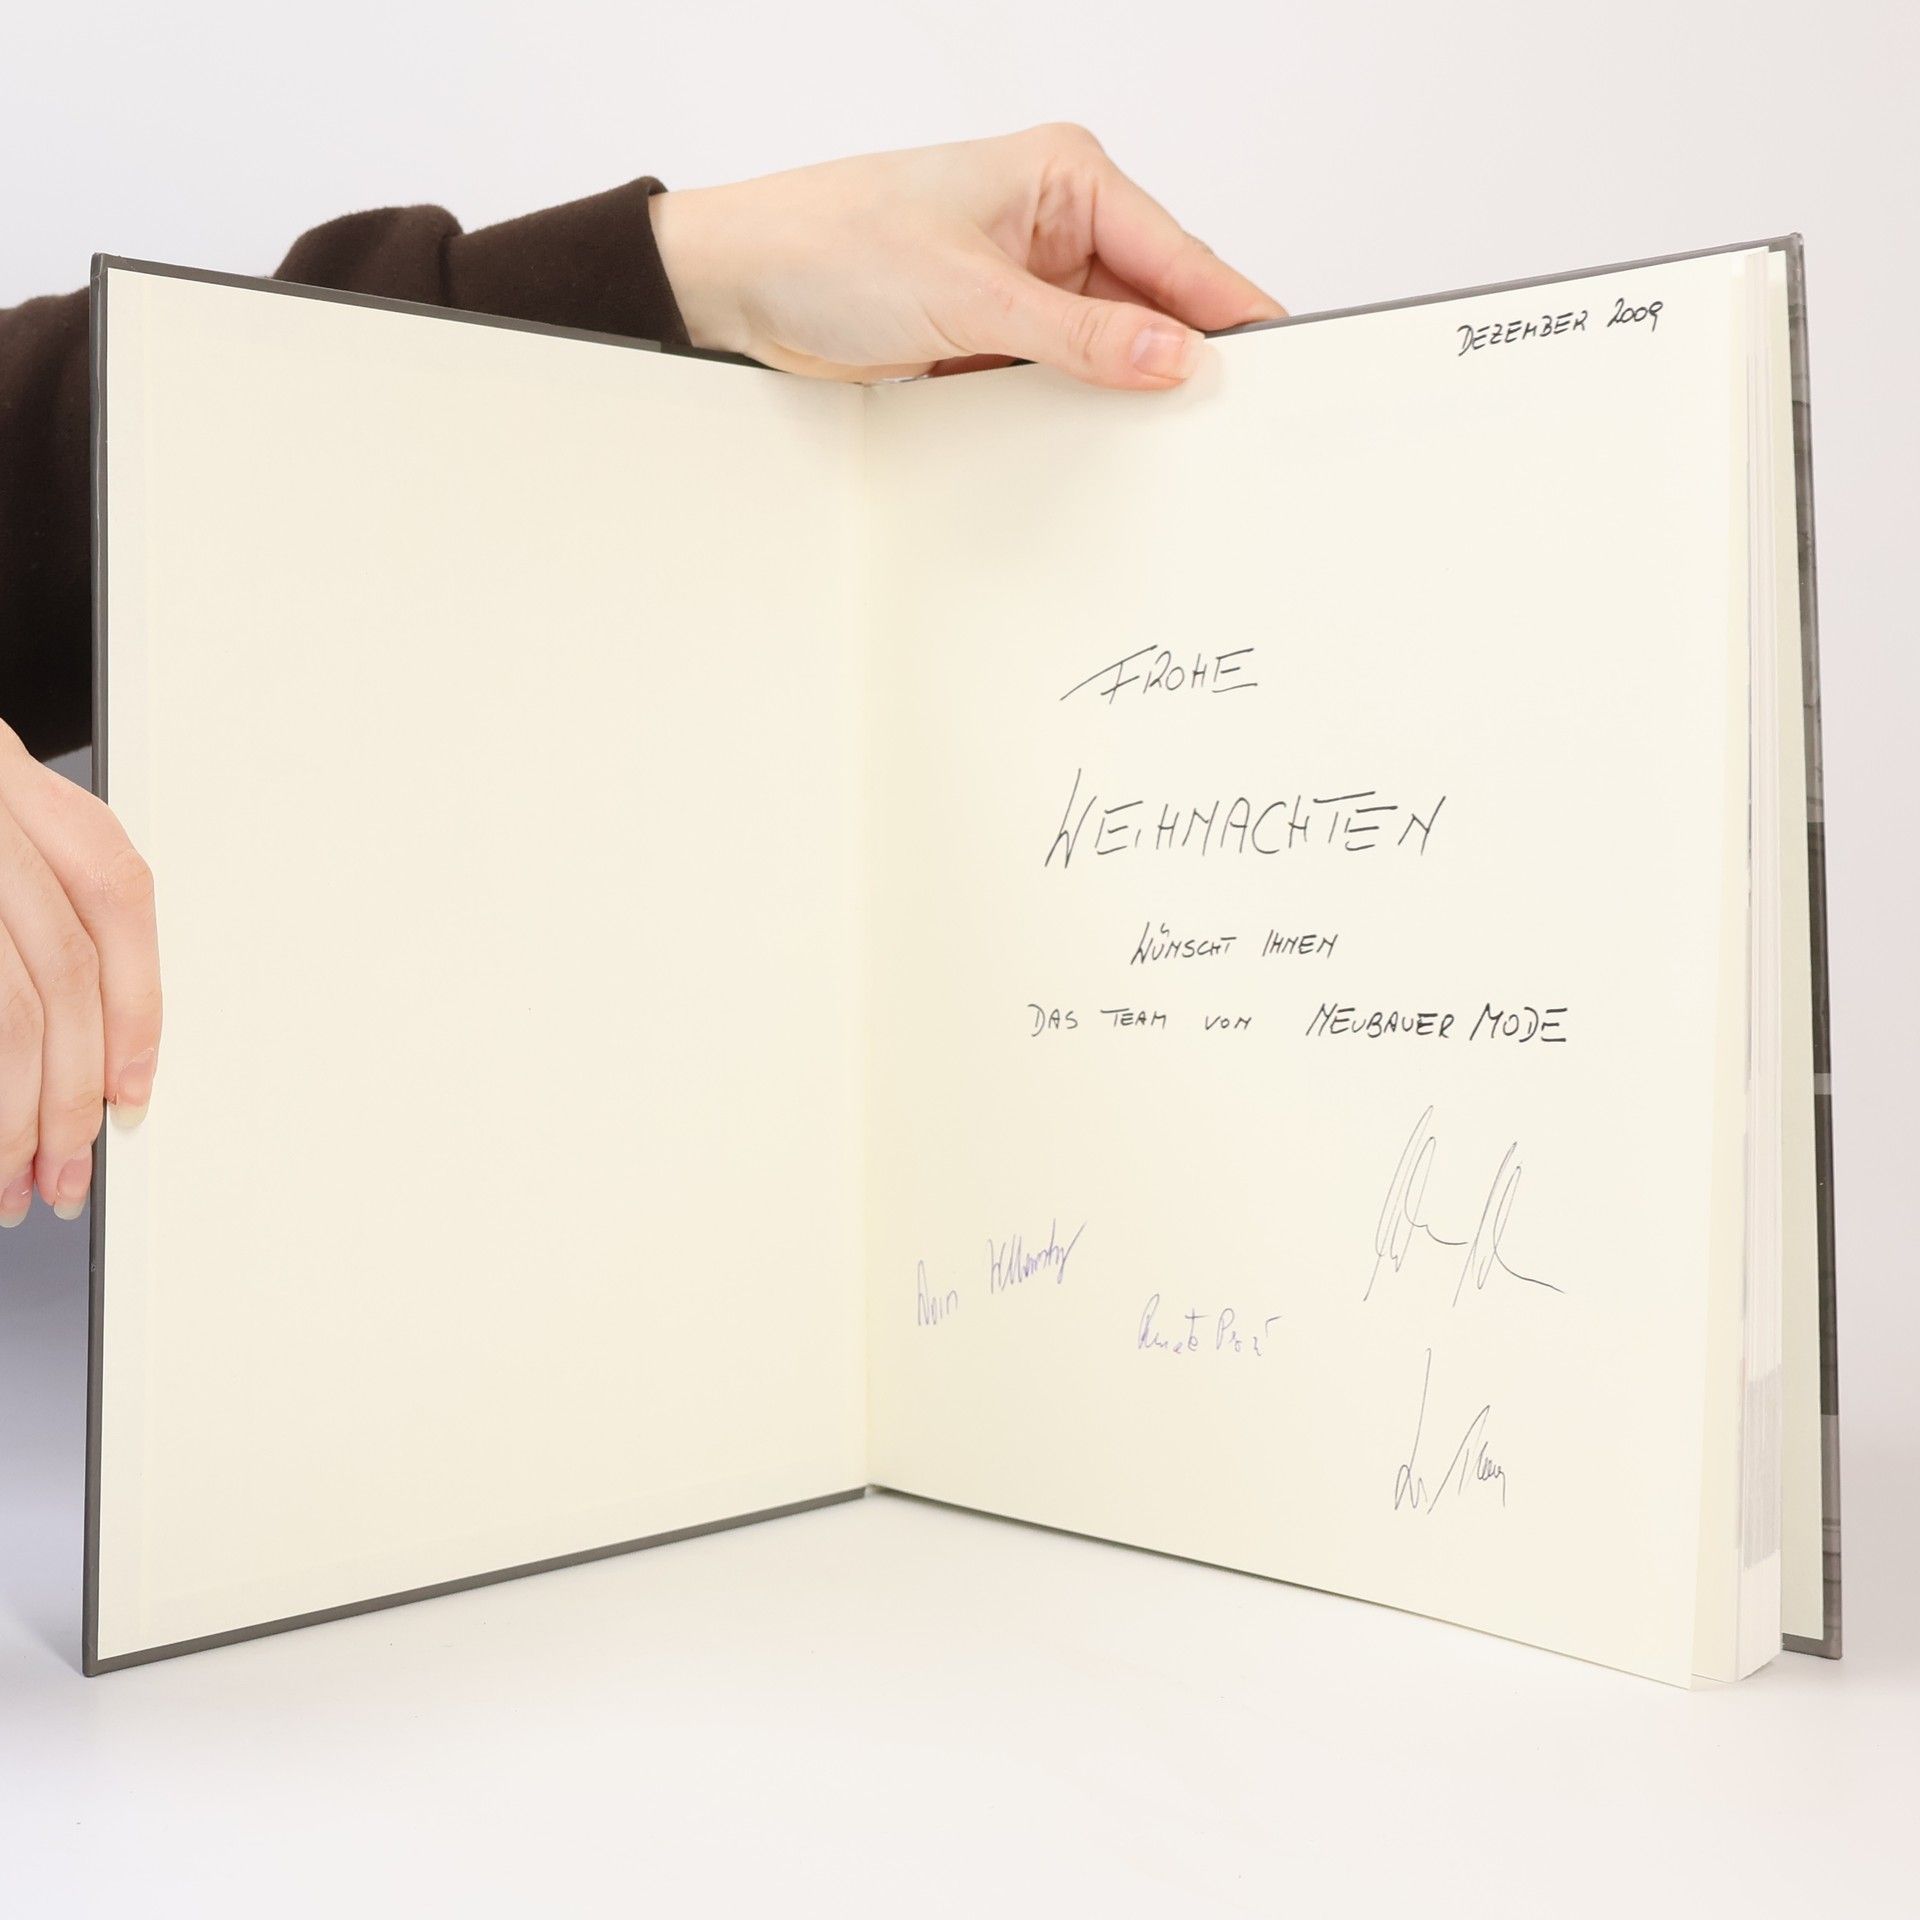 DEZEMBER 2009
FROHE
WEIHNACHTEN
WÜNSCHT IHNEN
DAS TEAM VON NEUBAUER MODE